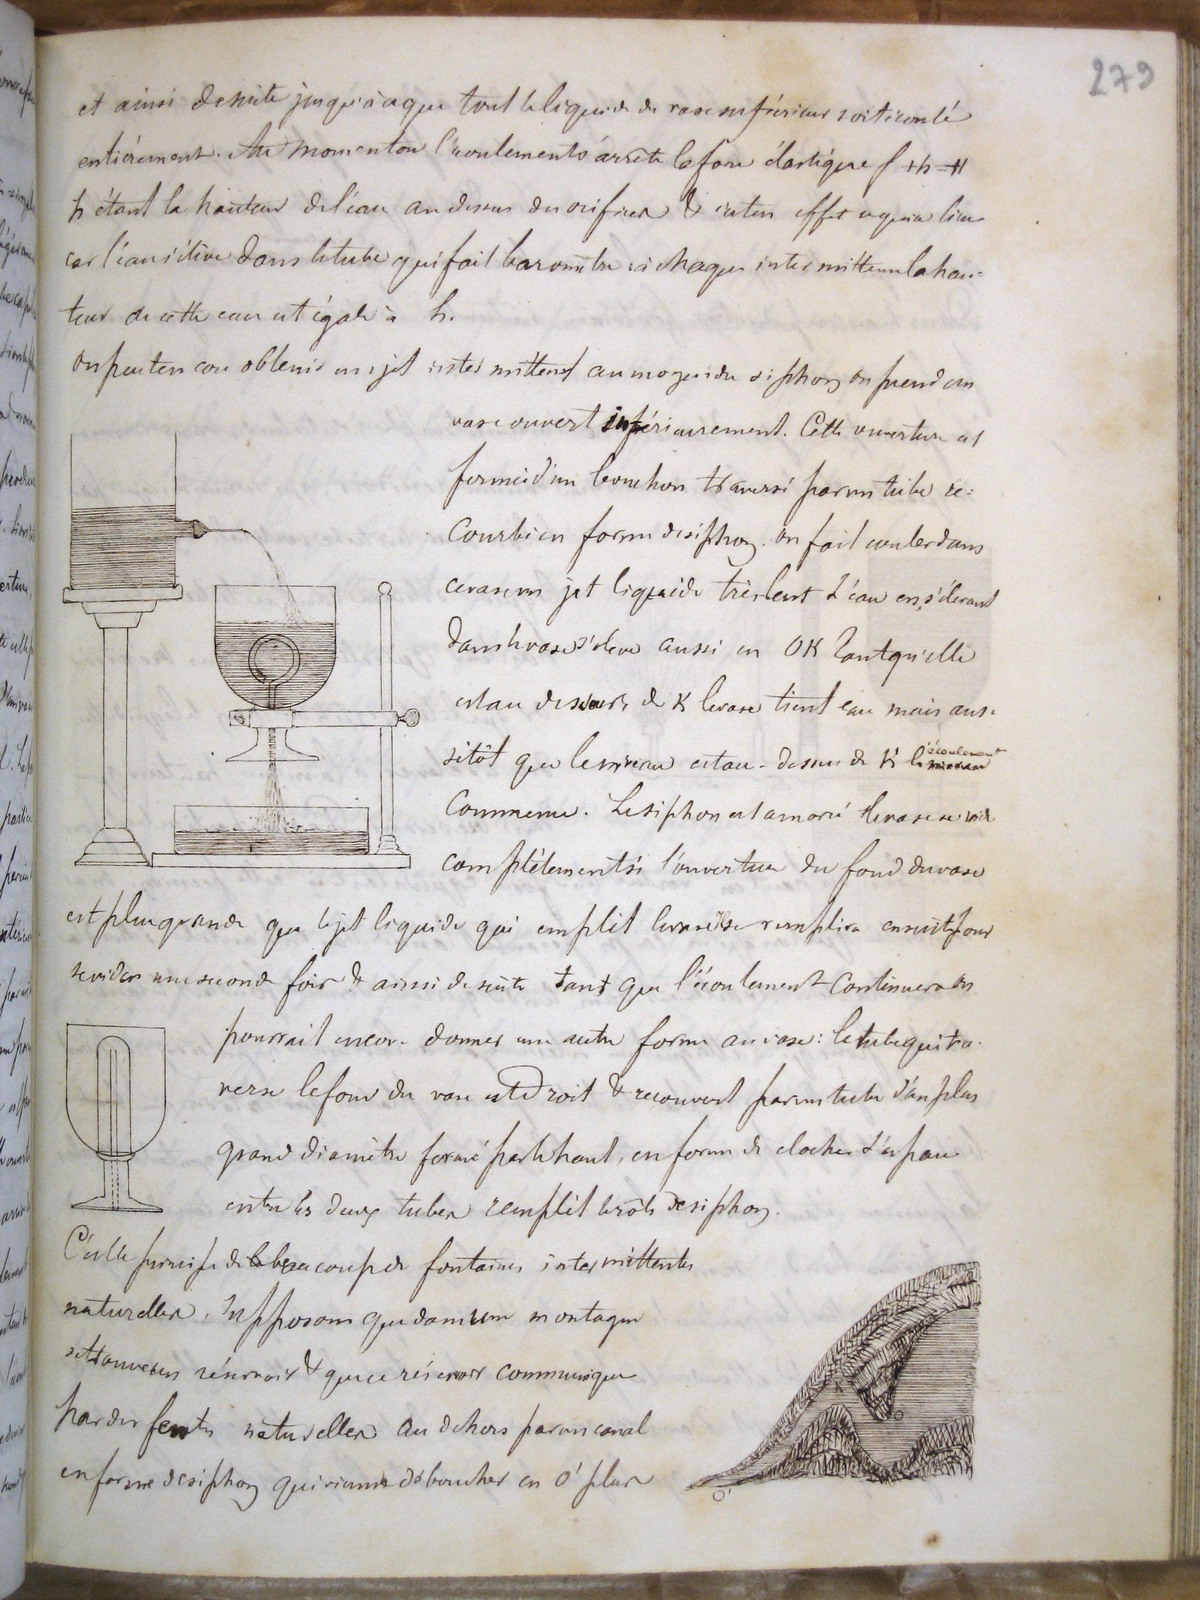 279
et ainsi de suite jusqu'à ce que tout le liquide du vase supérieur soit écoulé
entièrement. Au moment où l'écoulement s'arrête la force élastique f + h = H
h étant la hauteur de l'eau au dessus des orifices & c'est en effet ce qui a lieu
car l'eau s'élève dans le tube qui fait baromètre ; à chaque intermittence la hau-
teur de cette eau est égale à h.
On peut encore obtenir un jet intermittent au moyen du siphon on prend un
vase ouvert inférieurement. Cette ouverture est
fermée d'un bouchon traversé par un tube re-
courbé en forme de siphon. On fait couler dans
ce vase un jet liquide très lent L'eau en s'élevant
dans le vase s'élève aussi en OK Tant qu'elle
est au dessous de K le vase tient eau mais aus-
sitôt que le niveau est au-dessus de K l'écoulement
commence. Le siphon est amorcé & le vase se vide
complètement si l'ouverture du fond du vase
est plus grande que le jet liquide qui emplit le vase Il se remplira ensuite pour
se vider une seconde fois & ainsi de suite tant que l'écoulement continuera on
pourrait encore donner une autre forme au vase : le tube qui tra-
verse le fond du vase est droit & recouvert par un tube d'un plus
grand diamètre fermé par le haut, en forme de cloche L'espace
entre les deux tubes remplit le rôle de siphon.
C'est le principe de beaucoup de fontaines intermittentes
naturelles. Supposons que dans une montagne
se trouve un réservoir & que ce réservoir communique
par des fentes naturelles au dehors par un canal
en forme de siphon qui vienne déboucher en O' plus
K
O
O'